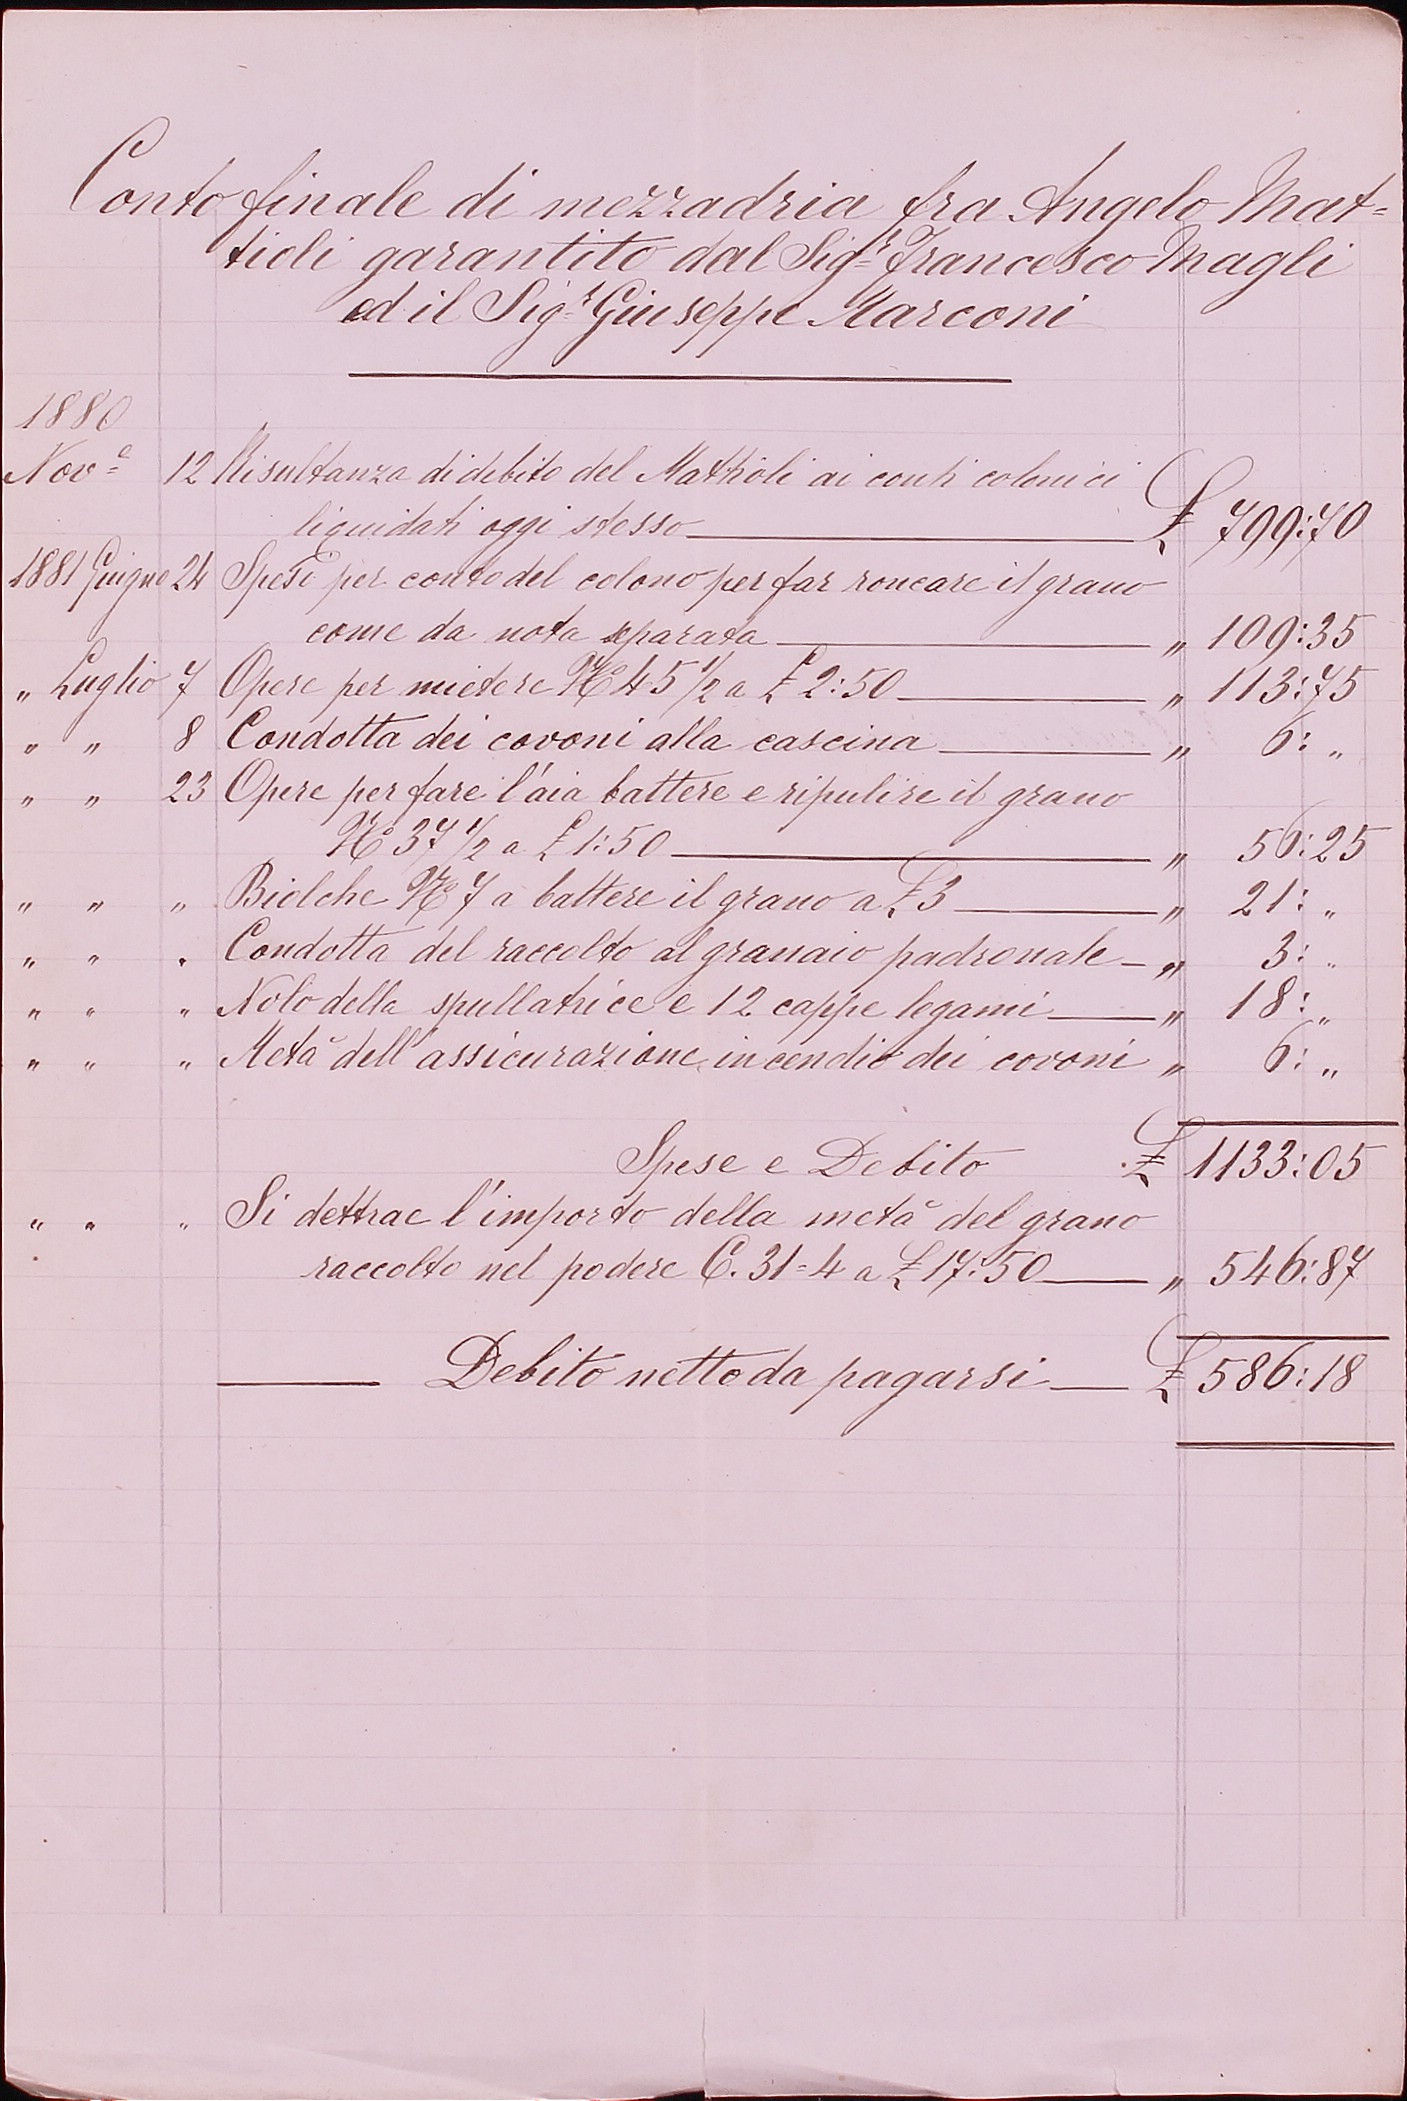 Conto finale di mezzadria fra Angelo Mat=
tioli garantito dal Sig.r Francesco Magli
ed il Sig.r Giuseppe Marconi
1880
Nov.e 12 Risultanza di debito del Mattioli ai conti colonici
liquidati oggi stesso £ 799:70
1881 Giugno 24 Spesi per conto del colono per far roncare il grano
come da nota separata " 109:35
" Luglio 7 Opere per mietere No 45 1/2 a £ 2:50 " 113:75
" " 8 Condotta dei covoni alla cascina " 6: "
" " 23 Opere per fare l'aia battere e ripulire il grano
No 37 1/2 a £ 1:50 " 56:25
" " " Biolche No 7 a battere il grano a £ 3 " 21: "
" " " Condotta del raccolto al granaio padronale " 3: "
" " " Nolo della spullatrice e 12 cappe legami " 18: "
" " " Metà dell'assicurazione incendio dei covoni " 6: "
Spese e Debito £ 1133:05
" " " Si dettrae l'importo della metà del grano
raccolto nel podere C. 31=4 a £ 17:50 " 546:87
Debito netto da pagarsi £ 586:18